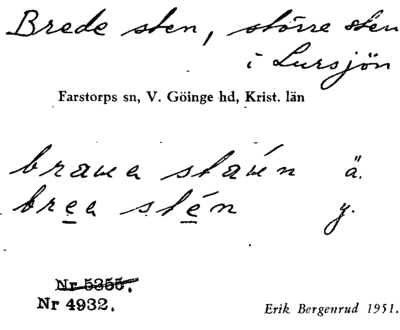 Brede sten, större sten
i Lursjön
Farstorps sn, V. Göinge hd, Krist. län
braua stauén ä.
brea stén y.
Nr 5355.
Nr 4932.
Erik Bergenrud 1951.